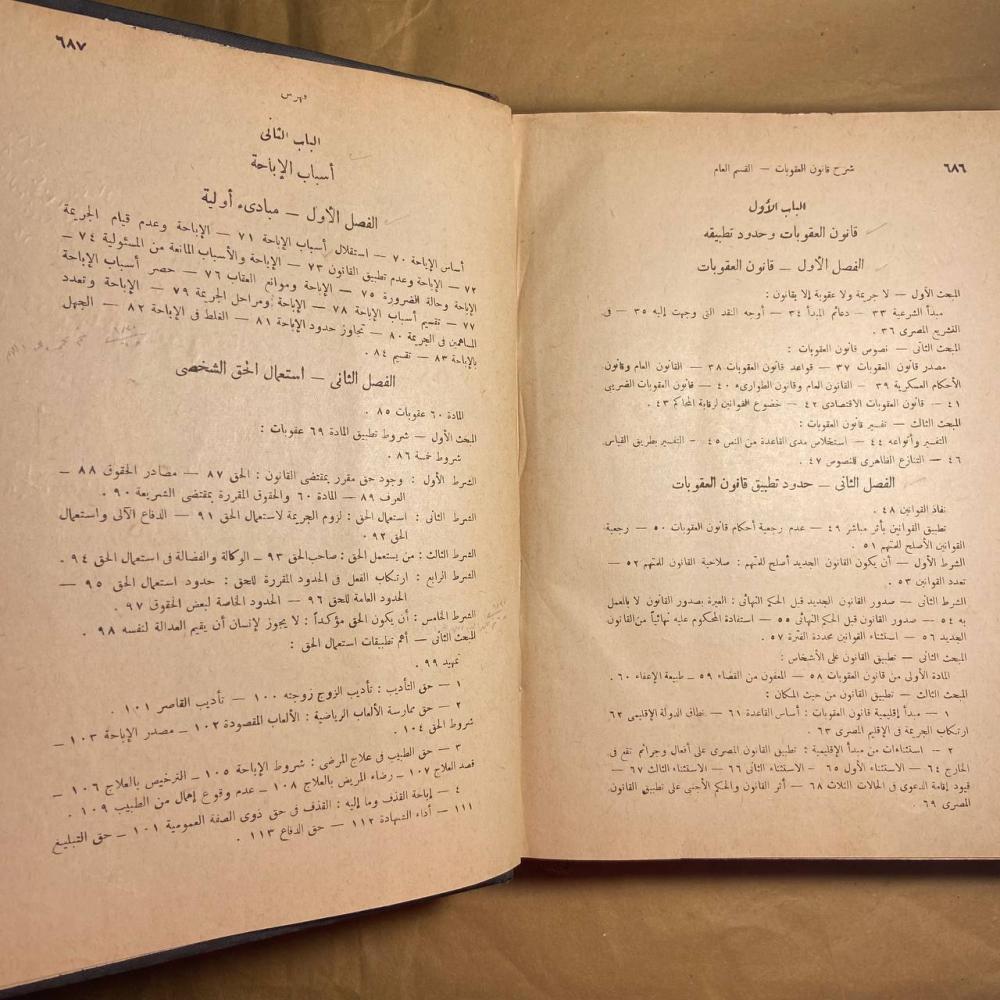 ٦٨٦
شرح قانون العقوبات — القسم العام
الباب الأول
قانون العقوبات وحدود تطبيقه
الفصل الأول — قانون العقوبات
المبحث الأول — لا جريمة ولا عقوبة إلا بقانون :
مبدأ الشرعية ٣٣ — دعائم المبدأ ٣٤ — أوجه النقد التى وجهت إليه ٣٥ — فى
التشريع المصرى ٣٦ .
المبحث الثانى — نصوص قانون العقوبات :
مصدر قانون العقوبات ٣٧ — قواعد قانون العقوبات ٣٨ — القانون العام وقانون
الأحكام العسكرية ٣٩ — القانون العام وقانون الطوارىء ٤٠ — قانون العقوبات الضريبى
٤١ — قانون العقوبات الاقتصادى ٤٢ — خضوع القوانين لرقابة المحاكم ٤٣ .
المبحث الثالث — تفسير قانون العقوبات :
التفسير وأنواعه ٤٤ — استخلاص مدى القاعدة من النص ٤٥ — التفسير بطريق القياس
٤٦ — التنازع الظاهرى للنصوص ٤٧ .
الفصل الثانى — حدود تطبيق قانون العقوبات
نفاذ القوانين ٤٨ .
تطبيق القوانين بأثر مباشر ٤٩ — عدم رجعية أحكام قانون العقوبات ٥٠ — رجعية
القوانين الأصلح للمتهم ٥١ .
الشرط الأول — أن يكون القانون الجديد أصلح للمتهم : صلاحية القانون للمتهم ٥٢ —
تعدد القوانين ٥٣ .
الشرط الثانى — صدور القانون الجديد قبل الحكم النهائى : العبرة بصدور القانون لا بالعمل
به ٥٤ — صدور القانون قبل الحكم النهائى ٥٥ — استفادة المحكوم عليه نهائياً من القانون
الجديد ٥٦ — استثناء القوانين محددة الفترة ٥٧ .
المبحث الثانى — تطبيق القانون على الأشخاص :
المادة الأولى من قانون العقوبات ٥٨ — المعفون من القضاء ٥٩ — طبيعة الإعفاء ٦٠ .
المبحث الثالث — تطبيق القانون من حيث المكان :
١ — مبدأ إقليمية قانون العقوبات : أساس القاعدة ٦١ — نطاق الدولة الإقليمى ٦٢
ارتكاب الجريمة فى الإقليم المصرى ٦٣ .
٢ — استثناءات من مبدأ الإقليمية : تطبيق القانون المصرى على أفعال وجرائم تقع فى
الخارج ٦٤ — الاستثناء الأول ٦٥ — الاستثناء الثانى ٦٦ — الاستثناء الثالث ٦٧ —
قيود إقامة الدعوى فى الحالات الثلاث ٦٨ — أثر القانون والحكم الأجنبى على تطبيق القانون
المصرى ٦٩ .
٦٨٧
فهرس
الباب الثانى
أسباب الإباحة
الفصل الأول — مبادىء أولية
أساس الإباحة ٧٠ — استقلال أسباب الإباحة ٧١ — الإباحة وعدم قيام الجريمة
٧٢ — الإباحة وعدم تطبيق القانون ٧٣ — الإباحة والأسباب المانعة من المسئولية ٧٤ —
الإباحة وحالة الضرورة ٧٥ — الإباحة وموانع العقاب ٧٦ — حصر أسباب الإباحة
٧٧ — تقسيم أسباب الإباحة ٧٨ — الإباحة ومراحل الجريمة ٧٩ — الإباحة وتعدد
المساهمين فى الجريمة ٨٠ — تجاوز حدود الإباحة ٨١ — الغلط فى الإباحة ٨٢ — الجهل
بالإباحة ٨٣ — تقسيم ٨٤ .
الفصل الثانى — استعمال الحق الشخصى
المادة ٦٠ عقوبات ٨٥ .
المبحث الأول — شروط تطبيق المادة ٦٩ عقوبات :
شروط خمسة ٨٦ .
الشرط الأول : وجود حق مقرر بمقتضى القانون : الحق ٨٧ — مصادر الحقوق ٨٨ —
العرف ٨٩ — المادة ٦٠ والحقوق المقررة بمقتضى الشريعة ٩٠ .
الشرط الثانى : استعمال الحق : لزوم الجريمة لاستعمال الحق ٩١ — الدفاع الآلى واستعمال
الحق ٩٢ .
الشرط الثالث : من يستعمل الحق : صاحب الحق ٩٣ — الوكالة والفضالة فى استعمال الحق ٩٤ .
الشرط الرابع : ارتكاب الفعل فى الحدود المقررة للحق : حدود استعمال الحق ٩٥ —
الحدود العامة للحق ٩٦ — الحدود الخاصة لبعض الحقوق ٩٧ .
الشرط الخامس : أن يكون الحق مؤكداً : لا يجوز لإنسان أن يقيم العدالة لنفسه ٩٨ .
المبحث الثانى — أهم تطبيقات استعمال الحق :
تمهيد ٩٩ .
١ — حق التأديب : تأديب الزوج زوجته ١٠٠ — تأديب القاصر ١٠١ .
٢ — حق ممارسة الألعاب الرياضية : الألعاب المقصودة ١٠٢ — مصدر الإباحة ١٠٣ —
شروط الحق ١٠٤ .
٣ — حق الطبيب فى علاج المرضى : شروط الإباحة ١٠٥ — الترخيص بالعلاج ١٠٦ —
قصد العلاج ١٠٧ — رضاء المريض بالعلاج ١٠٨ — عدم وقوع إهمال من الطبيب ١٠٩ .
٤ — إباحة القذف وما إليه : القذف فى حق ذوى الصفة العمومية ١٠١ — حق التبليغ
١١١ — أداء الشهادة ١١٢ — حق الدفاع ١١٣ .